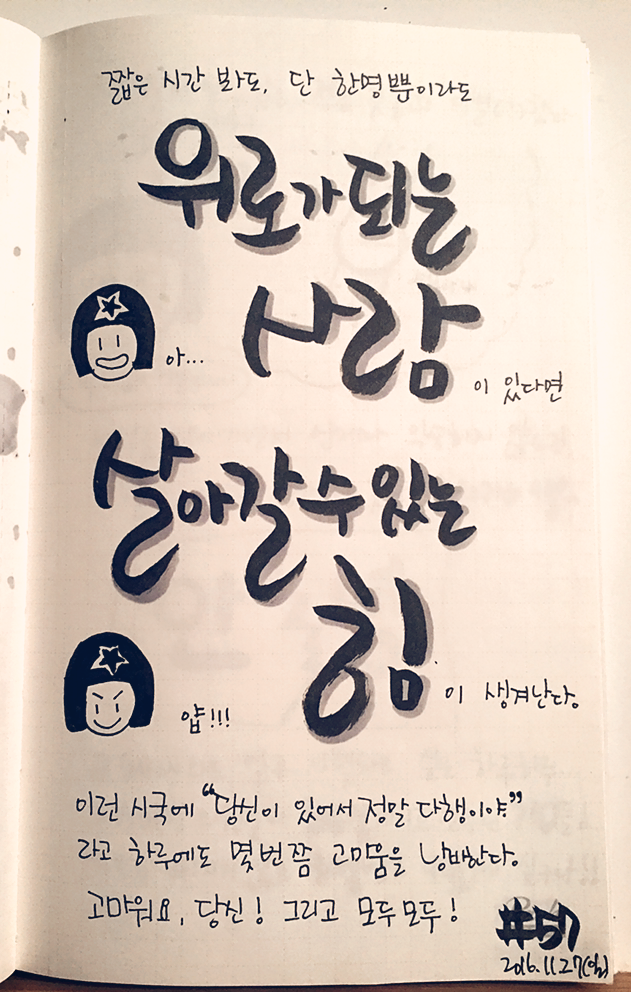 짧은 시간 봐도, 단 한명뿐이라도
위로가 되는
사람
아...
이 있다면
살아갈 수 있는
힘
얍!!!
이 생겨난다.
이런 시국에 “당신이 있어서 정말 다행이야”
라고 하루에도 몇 번쯤 고마움을 낭비한다.
고마워요, 당신! 그리고 모두모두!
#57
2016.11.27(일)